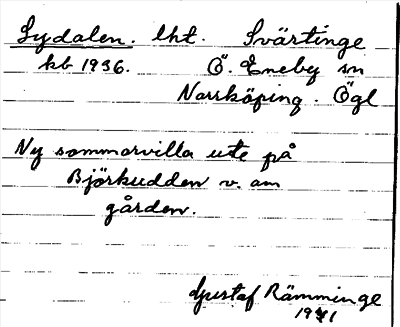 Sydalen. lht. Svärtinge
kb 1936. Ö. Eneby sn
Norrköping. Ögl
Ny sommarvilla ute på
Björkudden v. om
gården.
Gustaf Rämminge
1941